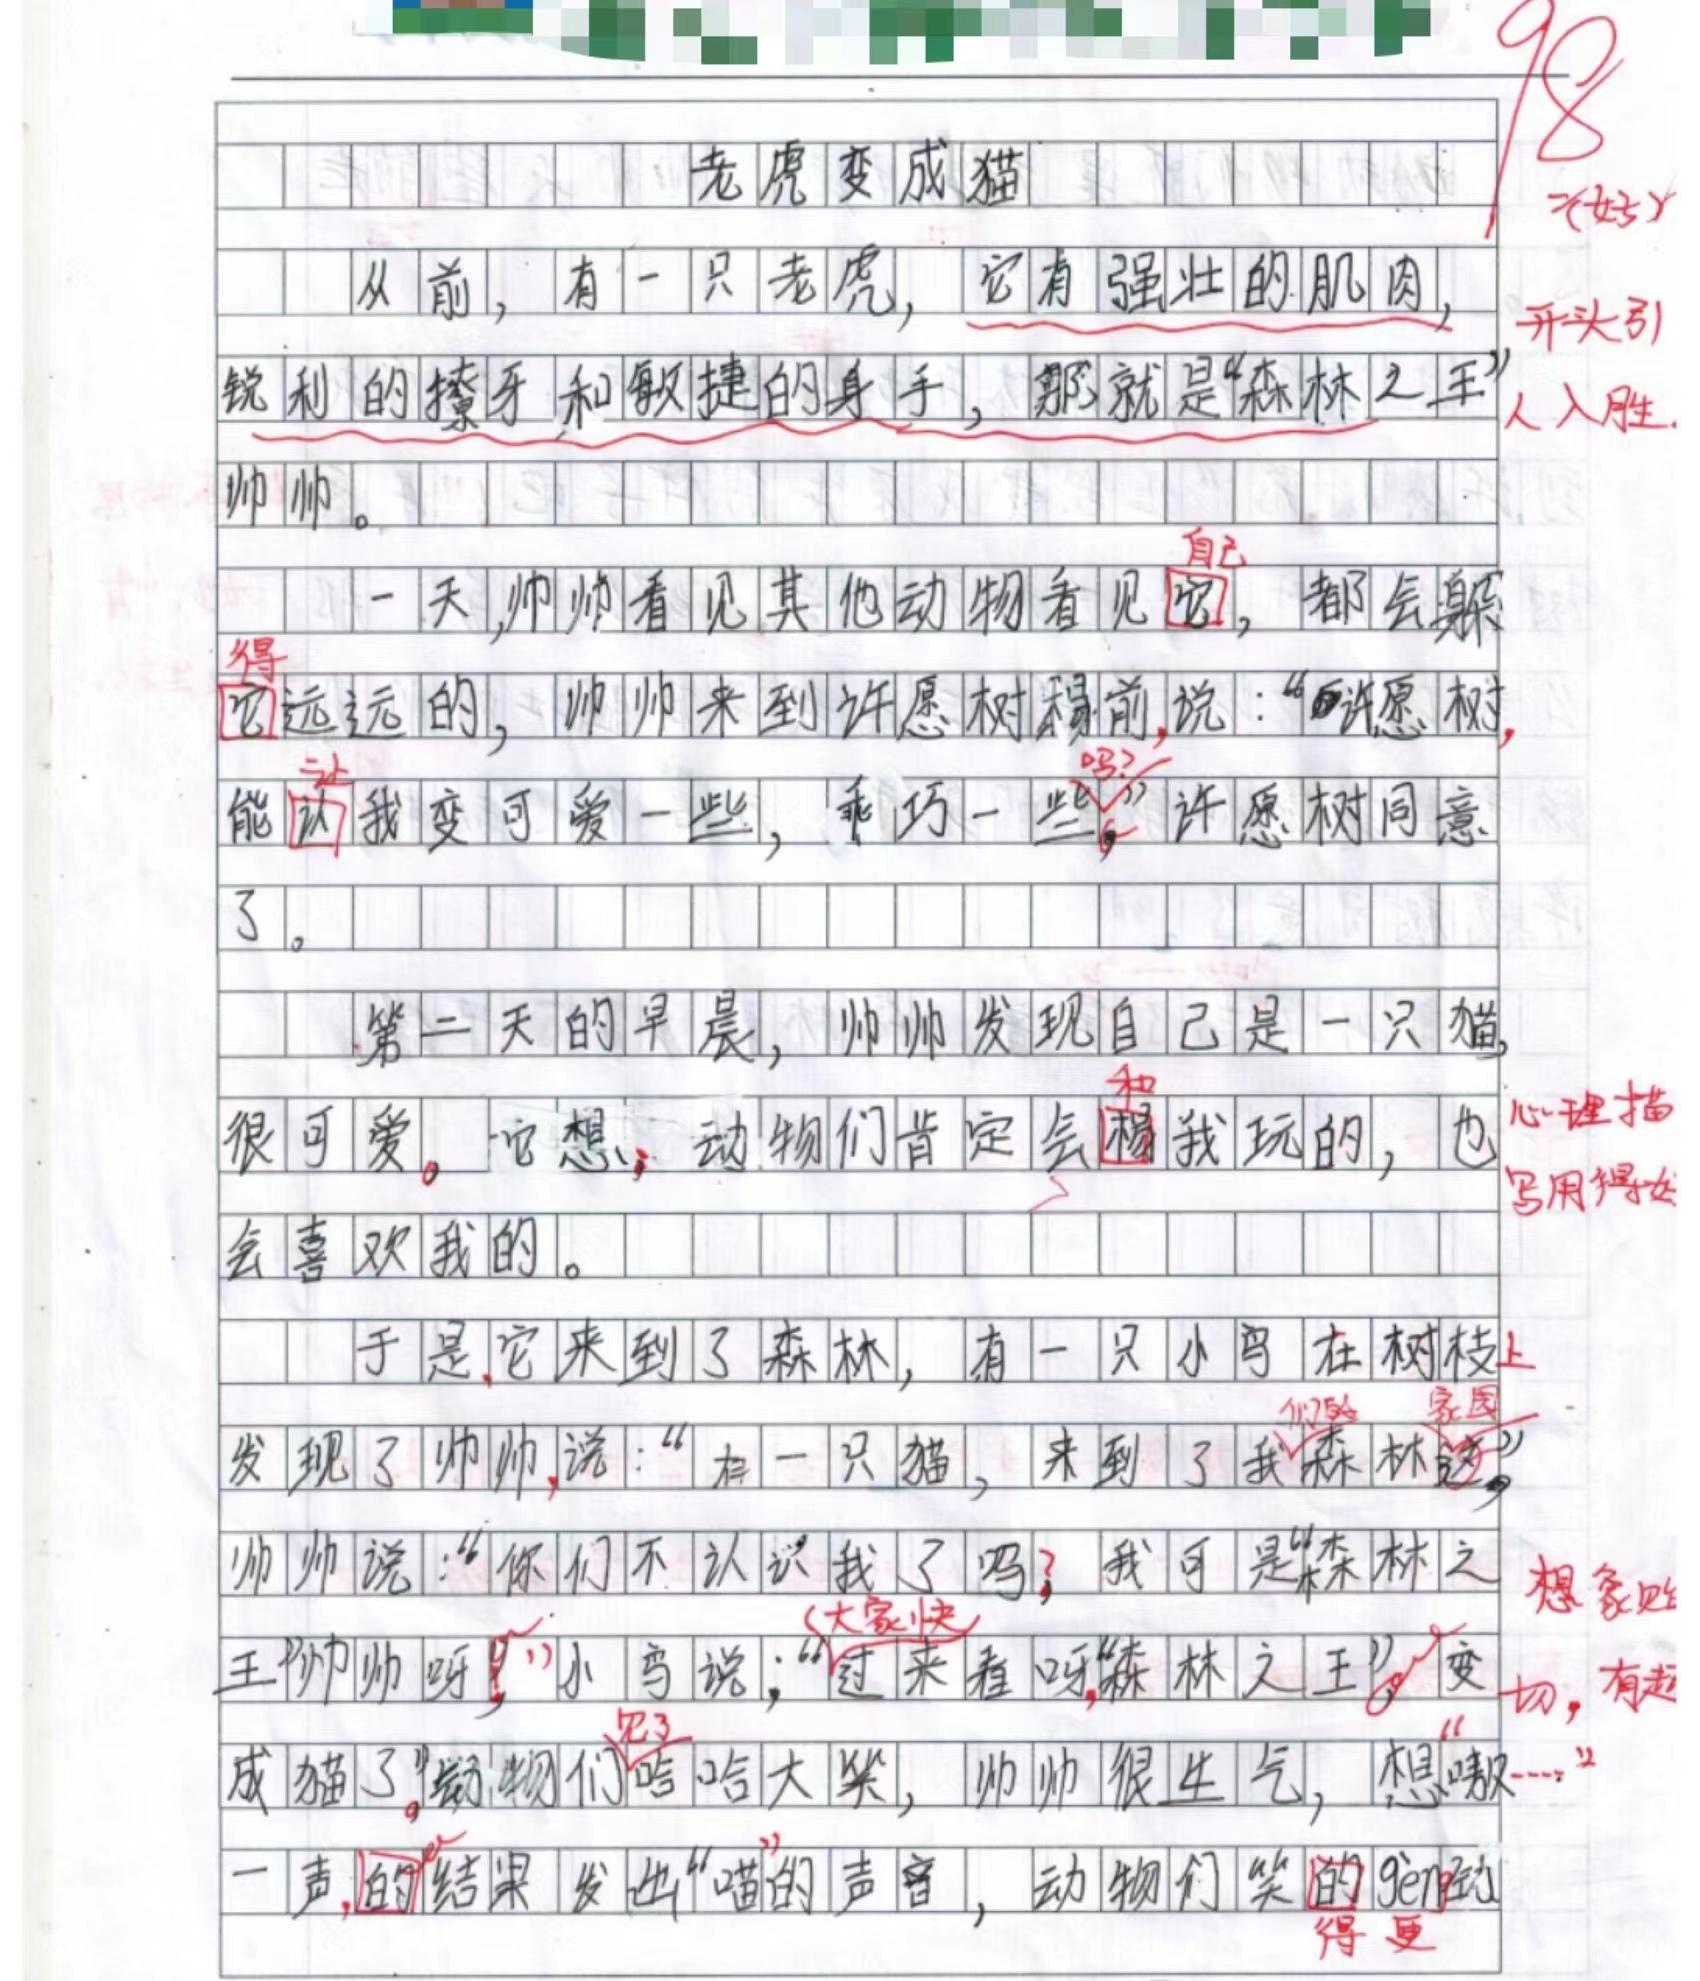 98
老虎变成猫
=(好)
从前，有一只老虎，它有强壮的肌肉，
开头引
锐利的獠牙和敏捷的身手，那就是“森林之王”
人入胜.
帅帅。
自己
一天,帅帅看见其他动物看见它，都会躲
得
它远远的，帅帅来到许愿树前,说：“许愿树,
让 吗？
能认我变可爱一些，乖巧一些”许愿树同意
了。
第二天的早晨，帅帅发现自己是一只猫,
和
很可爱。它想，动物们肯定会我玩的，也
心理描
写用得
会喜欢我的。
于是,它来到了森林，有一只小鸟在树枝上
们的 家园
发现了帅帅,说：“有一只猫，来到了我森林”
帅帅说：“你们不认识我了吗？我可是“森林之
想象
(大家快
王”帅帅呀！”小鸟说：“过来看呀,“森林之王”变
切，有
见了
成猫了。”动物们哈哈大笑，帅帅很生气，想“嗷……”
一声,的结果发出“喵”的声音，动物们笑的gèng
得 更